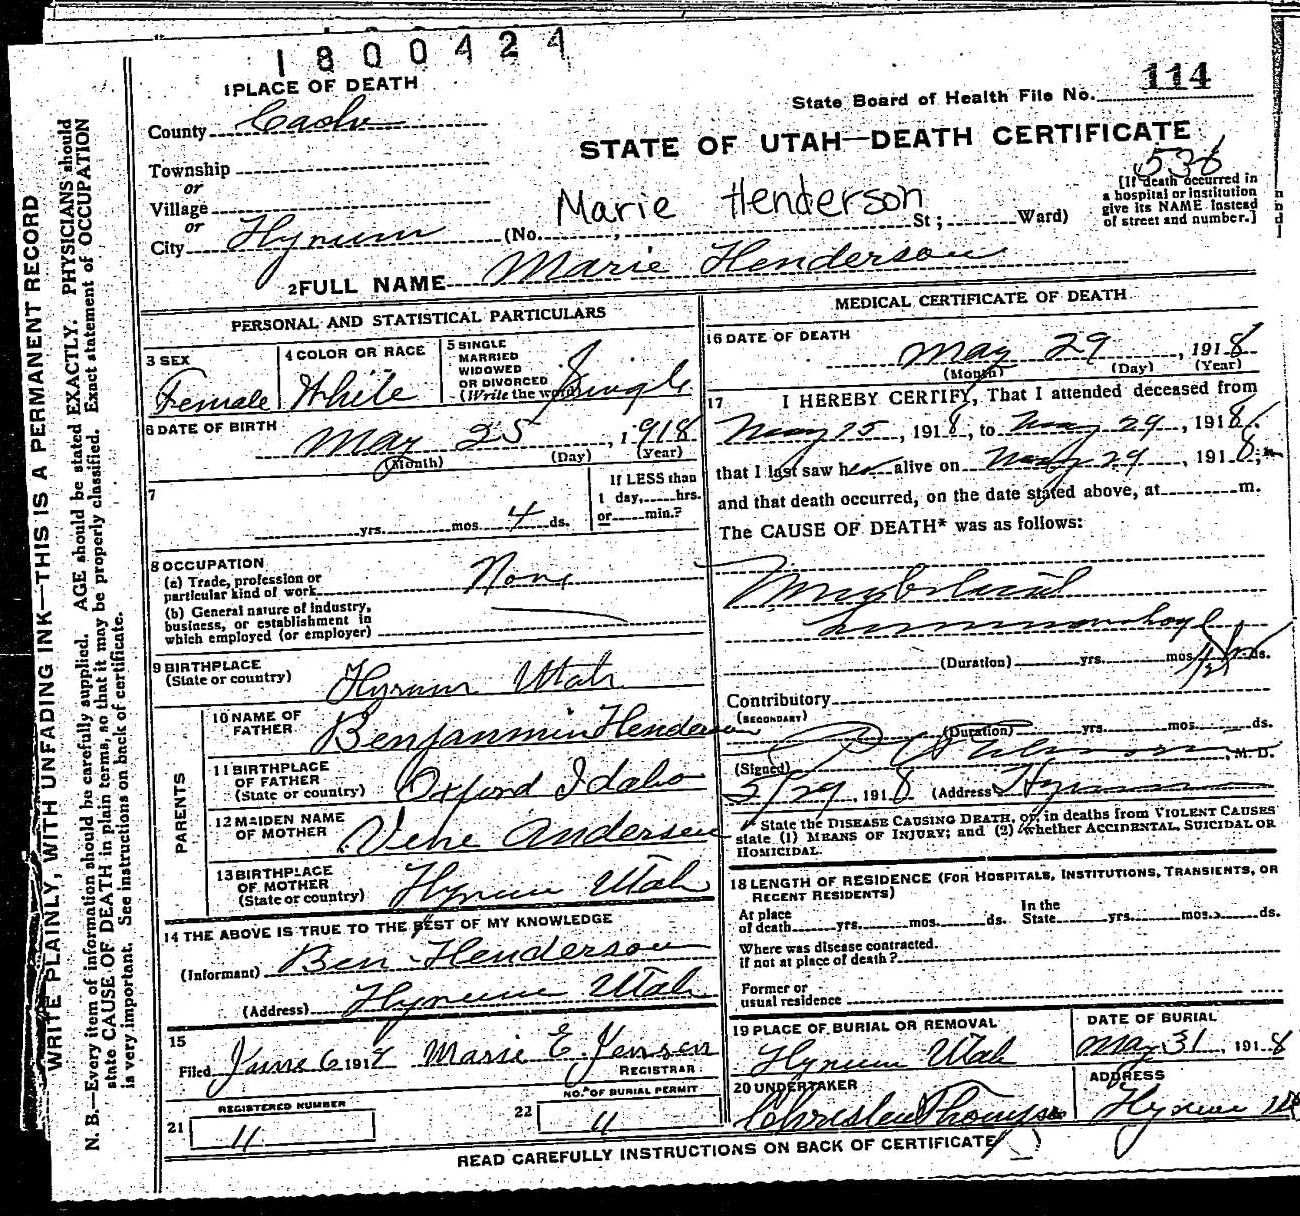 1800424
1 PLACE OF DEATH
114
State Board of Health File No.
County Cache
STATE OF UTAH—DEATH CERTIFICATE
Township
or
Village
or
City Hyrum
536
[If death occurred in
a hospital or institution
give its NAME instead
of street and number.]
Marie Henderson
(No. , St ; Ward)
2 FULL NAME Marie Henderson
PERSONAL AND STATISTICAL PARTICULARS
3 SEX
Female
4 COLOR OR RACE
White
5 SINGLE
MARRIED
WIDOWED
OR DIVORCED
(Write the word)
Single
6 DATE OF BIRTH
May 25, 1918
(Month) (Day) (Year)
7
yrs. mos. 4 ds.
If LESS than
1 day, hrs.
or min.?
8 OCCUPATION
(a) Trade, profession or
particular kind of work None
(b) General nature of industry,
business, or establishment in
which employed (or employer)
9 BIRTHPLACE
(State or country) Hyrum Utah
PARENTS
10 NAME OF
FATHER Benjanmin Henderson
11 BIRTHPLACE
OF FATHER
(State or country) Oxford Idaho
12 MAIDEN NAME
OF MOTHER Vene Andersen
13 BIRTHPLACE
OF MOTHER
(State or country) Hyrum Utah
14 THE ABOVE IS TRUE TO THE BEST OF MY KNOWLEDGE
(Informant) Ben Henderson
(Address) Hyrum Utah
15
Filed June 6 191 Marie E. Jensen
REGISTRAR
REGISTERED NUMBER
21 11
NO. OF BURIAL PERMIT
22 11
MEDICAL CERTIFICATE OF DEATH
16 DATE OF DEATH
May 29, 1918
(Month) (Day) (Year)
17 I HEREBY CERTIFY, That I attended deceased from
May 25, 1918, to May 29, 1918.
that I last saw her alive on May 29, 1918,
and that death occurred, on the date stated above, at m.
The CAUSE OF DEATH* was as follows:
(Duration) yrs. mos. ds.
Contributory
(SECONDARY)
(Duration) yrs. mos. ds.
(Signed) , M. D.
5/29, 1918 (Address) Hyrum
* State the DISEASE CAUSING DEATH, or, in deaths from VIOLENT CAUSES
state (1) MEANS OF INJURY; and (2) whether ACCIDENTAL, SUICIDAL OR
HOMICIDAL.
18 LENGTH OF RESIDENCE (FOR HOSPITALS, INSTITUTIONS, TRANSIENTS, OR
RECENT RESIDENTS)
At place
of death yrs. mos. ds.
In the
State yrs. mos. ds.
Where was disease contracted.
if not at place of death?
Former or
usual residence
19 PLACE OF BURIAL OR REMOVAL
Hyrum Utah
DATE OF BURIAL
May 31, 1918
20 UNDERTAKER
Thompson
ADDRESS
Hyrum
READ CAREFULLY INSTRUCTIONS ON BACK OF CERTIFICATE
WRITE PLAINLY, WITH UNFADING INK—THIS IS A PERMANENT RECORD
N. B.—Every item of information should be carefully supplied. AGE should be stated EXACTLY. PHYSICIANS should
state CAUSE OF DEATH in plain terms, so that it may be properly classified. Exact statement of OCCUPATION
is very important. See instructions on back of certificate.